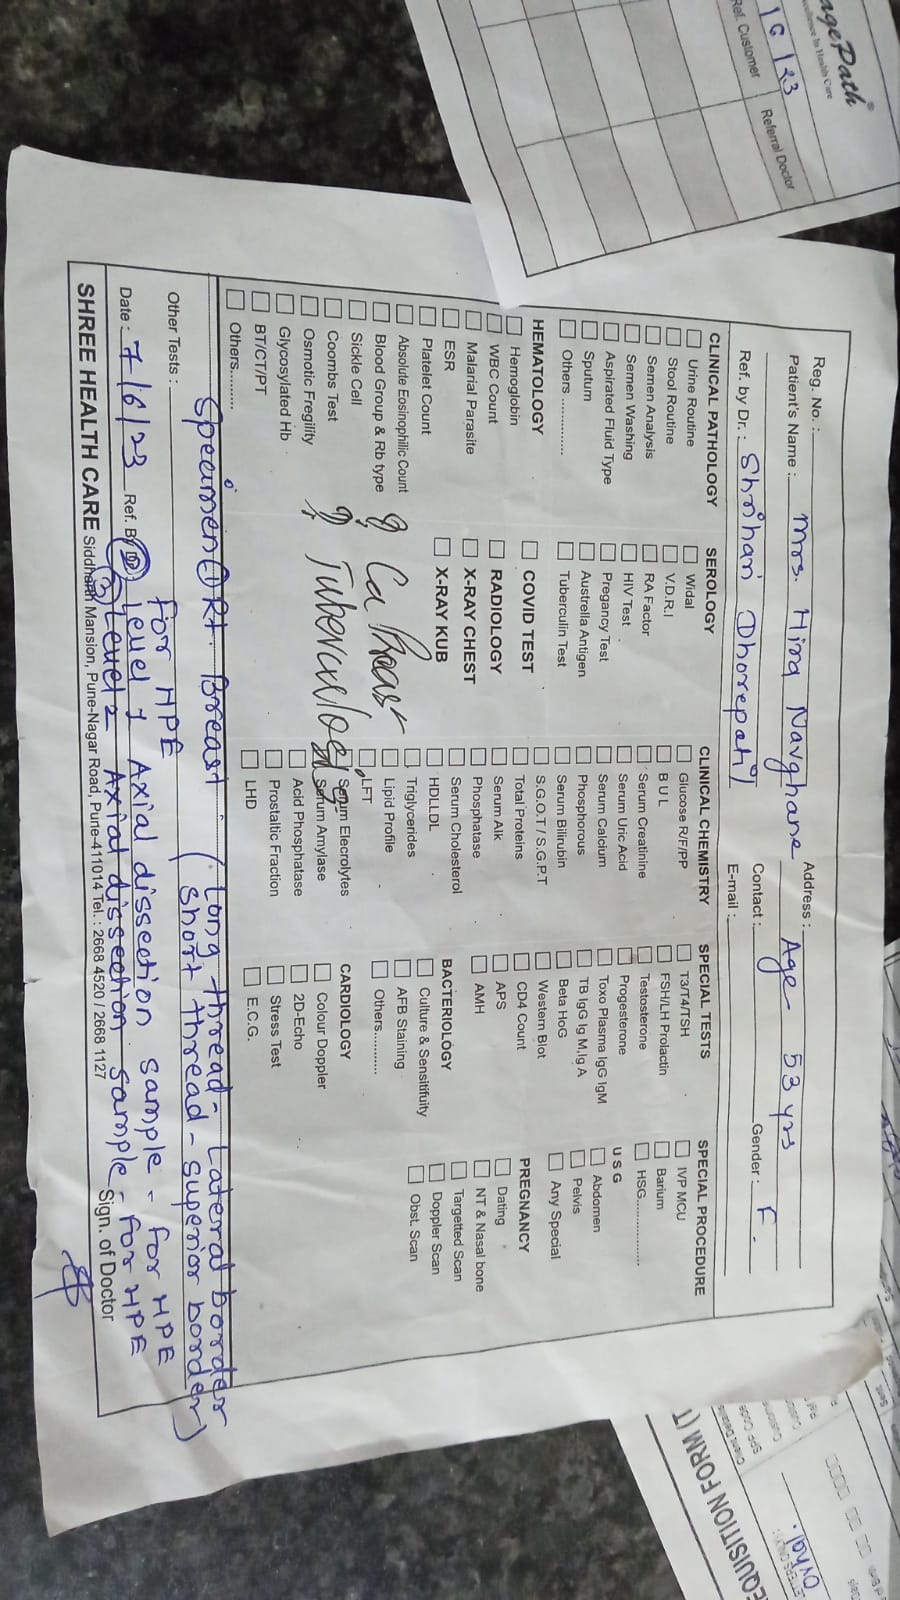 agePath®
Excellence In Health Care
Ref. Customer
Referral Doctor
Reg. No. :
Patient's Name : Mrs. Hira Navghane Address : Age - 53 yrs
Contact : Gender : F.
Ref. by Dr. : Shrihari Dhorepatil E-mail :
CLINICAL PATHOLOGY
Urine Routine
Stool Routine
Semen Analysis
Semen Washing
Aspirated Fluid Type
Sputum
Others ..............
HEMATOLOGY
Hemoglobin
WBC Count
Malarial Parasite
ESR
Platelet Count
Absolute Eosinophilic Count
Blood Group & Rb type
Sickle Cell
Coombs Test
Osmotic Fregility
Glycosylated Hb
BT/CT/PT
Others.........
SEROLOGY
Widal
V.D.R.I
RA Factor
HIV Test
Pregancy Test
Australia Antigen
Tuberculin Test
COVID TEST
RADIOLOGY
X-RAY CHEST
X-RAY KUB
? Ca Breast
? Tuberculosis
CLINICAL CHEMISTRY
Glucose R/F/PP
B U L
Serum Creatinine
Serum Uric Acid
Serum Calcium
Phosphorous
Serum Bilirubin
S.G.O.T / S.G.P.T
Total Proteins
Serum Alk
Phosphatase
Serum Cholesterol
HDLLDL
Triglycerides
Lipid Profile
LFT
Serum Elecrolytes
Serum Amylase
Acid Phosphatase
Prostaltic Fraction
LHD
SPECIAL TESTS
T3/T4/TSH
FSH/LH Prolactin
Testosterone
Progesterone
Toxo Plasma IgG IgM
TB IgG Ig M,Ig A
Beta HoG
Western Blot
CD4 Count
APS
AMH
BACTERIOLOGY
Culture & Sensitifuity
AFB Staining
Others............
CARDIOLOGY
Colour Doppler
2D-Echo
Stress Test
E.C.G.
SPECIAL PROCEDURE
IVP MCU
Barium
HSG................
U S G
Abdomen
Pelvis
Any Special
PREGNANCY
Dating
NT & Nasal bone
Targetted Scan
Doppler Scan
Obst. Scan
Specimen ① Rt. Breast (Long thread - Lateral border
short thread - superior border)
Other Tests : for HPE
② level 1 Axial dissection sample - for HPE
Date : 7/6/23 Ref. By ③ Level 2 Axial dissection sample - for HPE
Sign. of Doctor
SHREE HEALTH CARE Siddharth Mansion, Pune-Nagar Road, Pune-411014 Tel. : 2668 4520 / 2668 1127
EQUISITION FORM (T
SPP Code